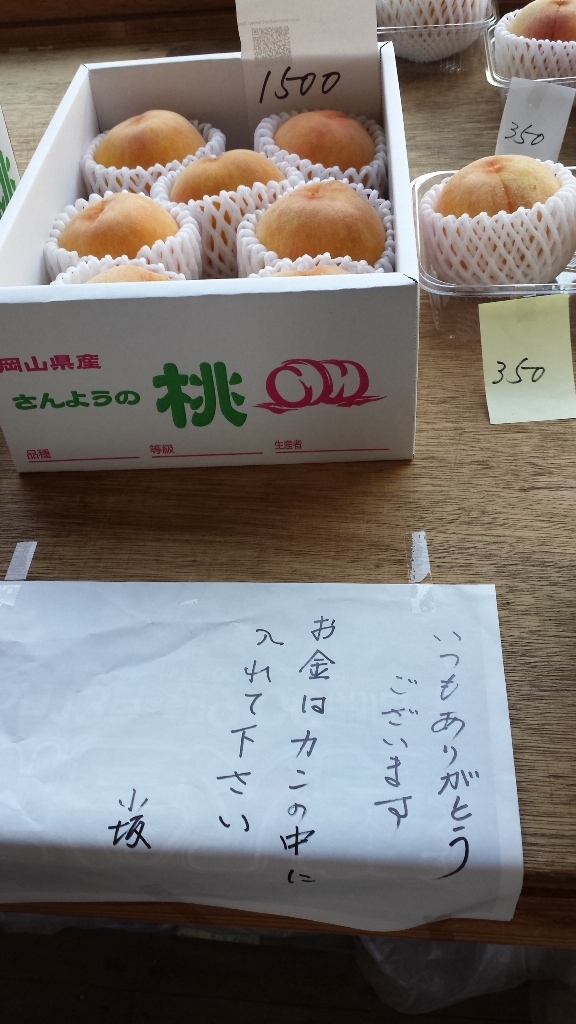 1500
350
350
岡山県産
さんようの 桃
品種 等級 生産者
いつもありがとう
ございます
お金はカンの中に
入れて下さい
小坂